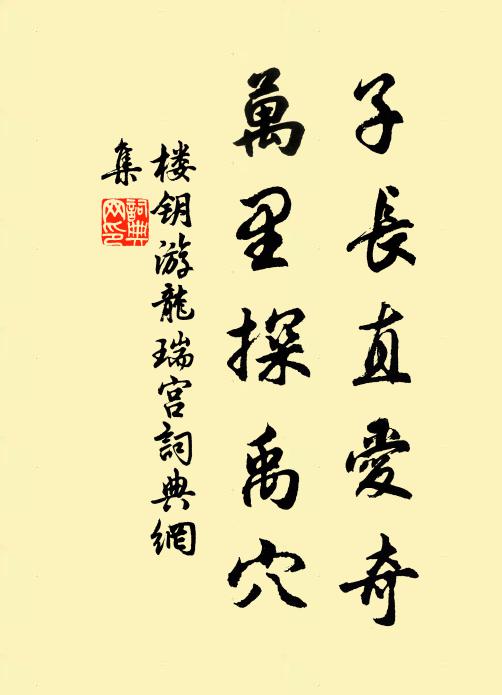 子長直愛奇
萬里探禹穴
楼钥游龍瑞宫詞典網
集
詞典
网印